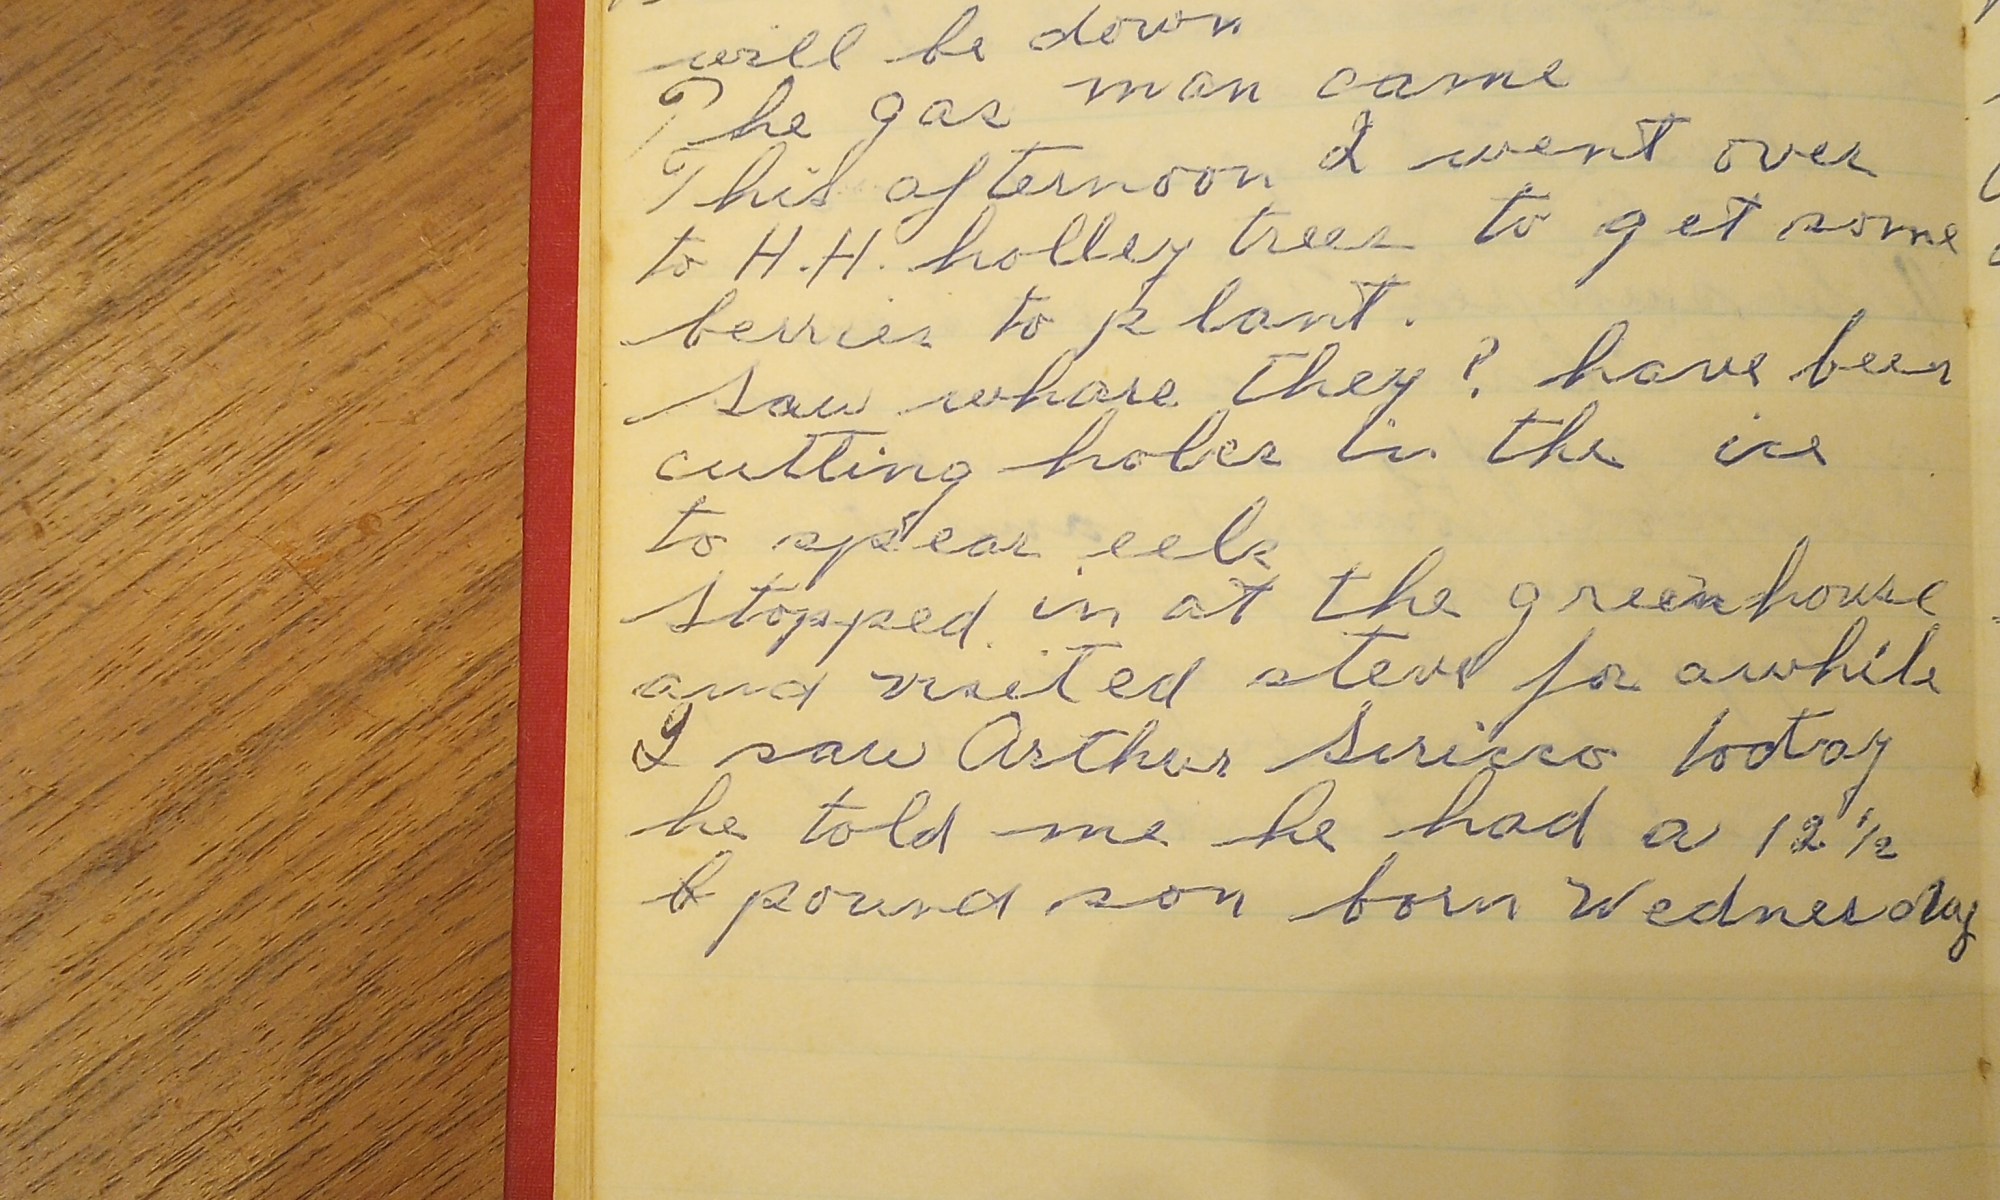 will be down
The gas man came
This afternoon I went over
to H.H. holley trees to get some
berries to plant.
Saw whare they? have been
cutting holes in the ice
to spear eels
Stopped in at the greenhouse
and visited steve for awhile
I saw Arthur Siricco today
he told me he had a 12 1/2
pound son born Wednesday